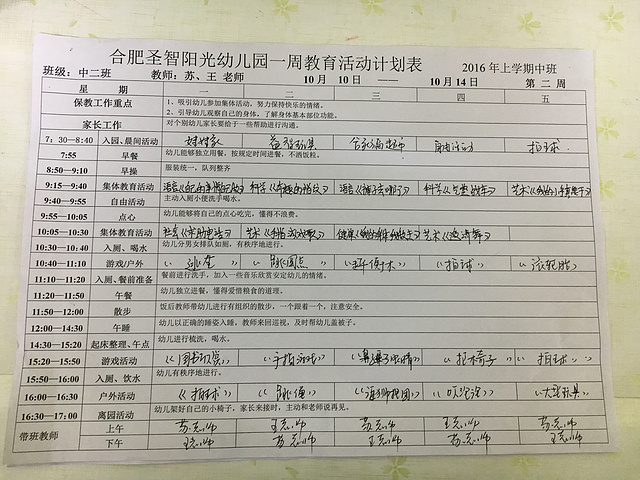 合肥圣智阳光幼儿园一周教育活动计划表
班级：中二班 教师：苏、王 老师 10月 10日 —— 10月14日 2016年上学期中班 第 二 周
星 期 一 二 三 四 五
保教工作重点 1、吸引幼儿参加集体活动，努力保持快乐的情绪。
2、引导幼儿观察自己的身体，了解身体基本部位功能。
家长工作 对个别幼儿家长要给于一些帮助进行沟通。
7：30—8:40 入园、晨间活动 娃娃家 益智玩具 自由活动 拍球
7:55 早餐 幼儿能够独立用餐，按规定时间进餐，不洒饭粒。
8:50—9:10 早操 服装统一，队列整齐
9:15—9:40 集体教育活动 语言 科学 语言 科学 艺术
9:40—9:55 自由活动 主动入厕小便洗手喝水。
9:55—10:05 点心 幼儿能够将自己的点心吃完，懂得不浪费。
10:05—10:30 集体教育活动 社会 艺术 健康 艺术
10:30—10:40 入厕、喝水 幼儿分男女排队如厕，有秩序地进行。
10:40—11:10 游戏/户外 《跳圆点》 《平衡木》 《拍球》 《滚轮胎》
11:10—11:20 入厕、餐前准备 餐前进行洗手，加入一些音乐欣赏安定幼儿的情绪。
11:20—11:50 午餐 幼儿独立进餐，懂得爱惜粮食的道理。
11:50—12:00 散步 饭后教师带幼儿进行有组织的散步，一个跟着一个，注意安全。
12:00—14:30 午睡 幼儿以正确的睡姿入睡，教师来回巡视，及时帮幼儿盖被子。
14:30—15:20 起床整理、午点 幼儿进行梳洗，喝水。
15:20—15:50 游戏活动 《手指游戏》 《抢椅子》 《拍球》
15:50—16:00 入厕、饮水 幼儿有秩序地进行。
16:00—16:30 户外活动 《拍球》 《跳绳》 《吹泡泡》 《大型玩具》
16:30—17:00 离园活动 幼儿架好自己的小椅子，家长来接时，主动和老师说再见。
带班教师 上午 苏老师 王老师 苏老师 王老师 苏老师
下午 王老师 苏老师 王老师 苏老师 王老师